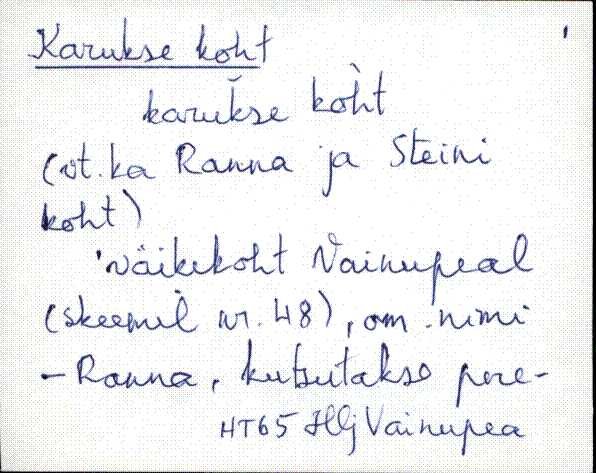 Karukse koht
karukse kòht
(vt. ka Ranna ja Steini
koht)
'väikekoht Vainupeal
(skeemil nr. 48), om. nimi
- Ranna, kutsutakse pere-
HT65 Hlj Vainupea